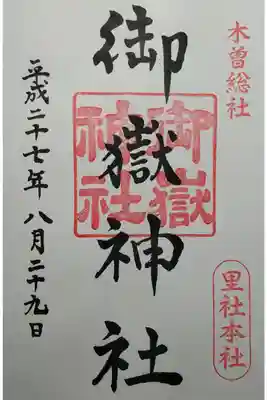 木曽総社
里社本社
御嶽神社
御嶽
神社
平成二十七年八月二十九日